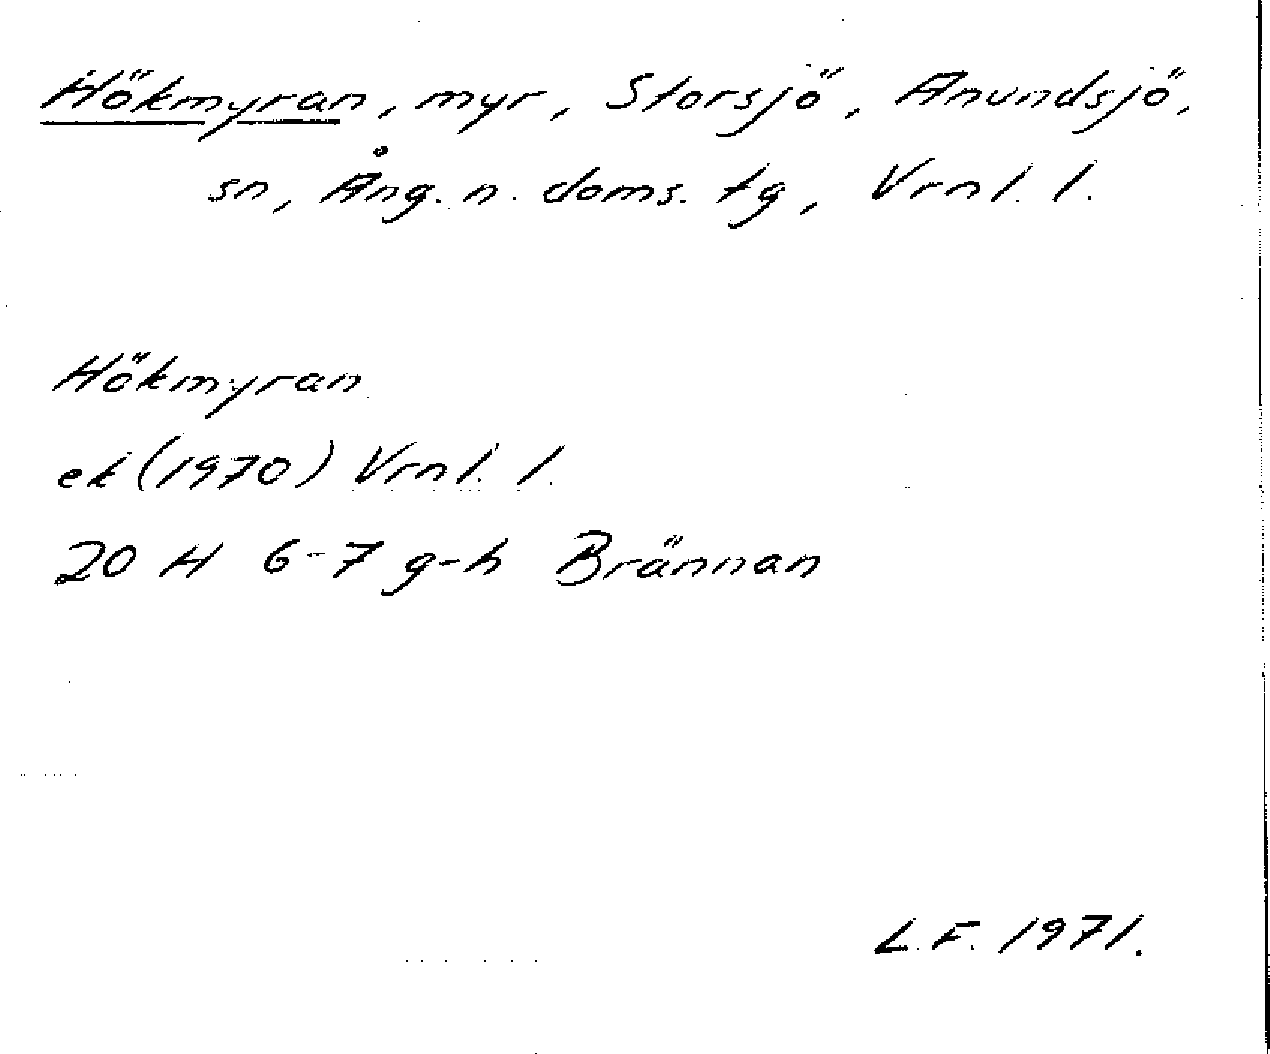 Hökmyran, myr, Storsjö, Anundsjö,
sn, Ång. n. doms. tg, Vrnl. l.
Hökmyran
ek (1970) Vrnl. l.
20 H 6-7 g-h Brännan
L.F. 1971.